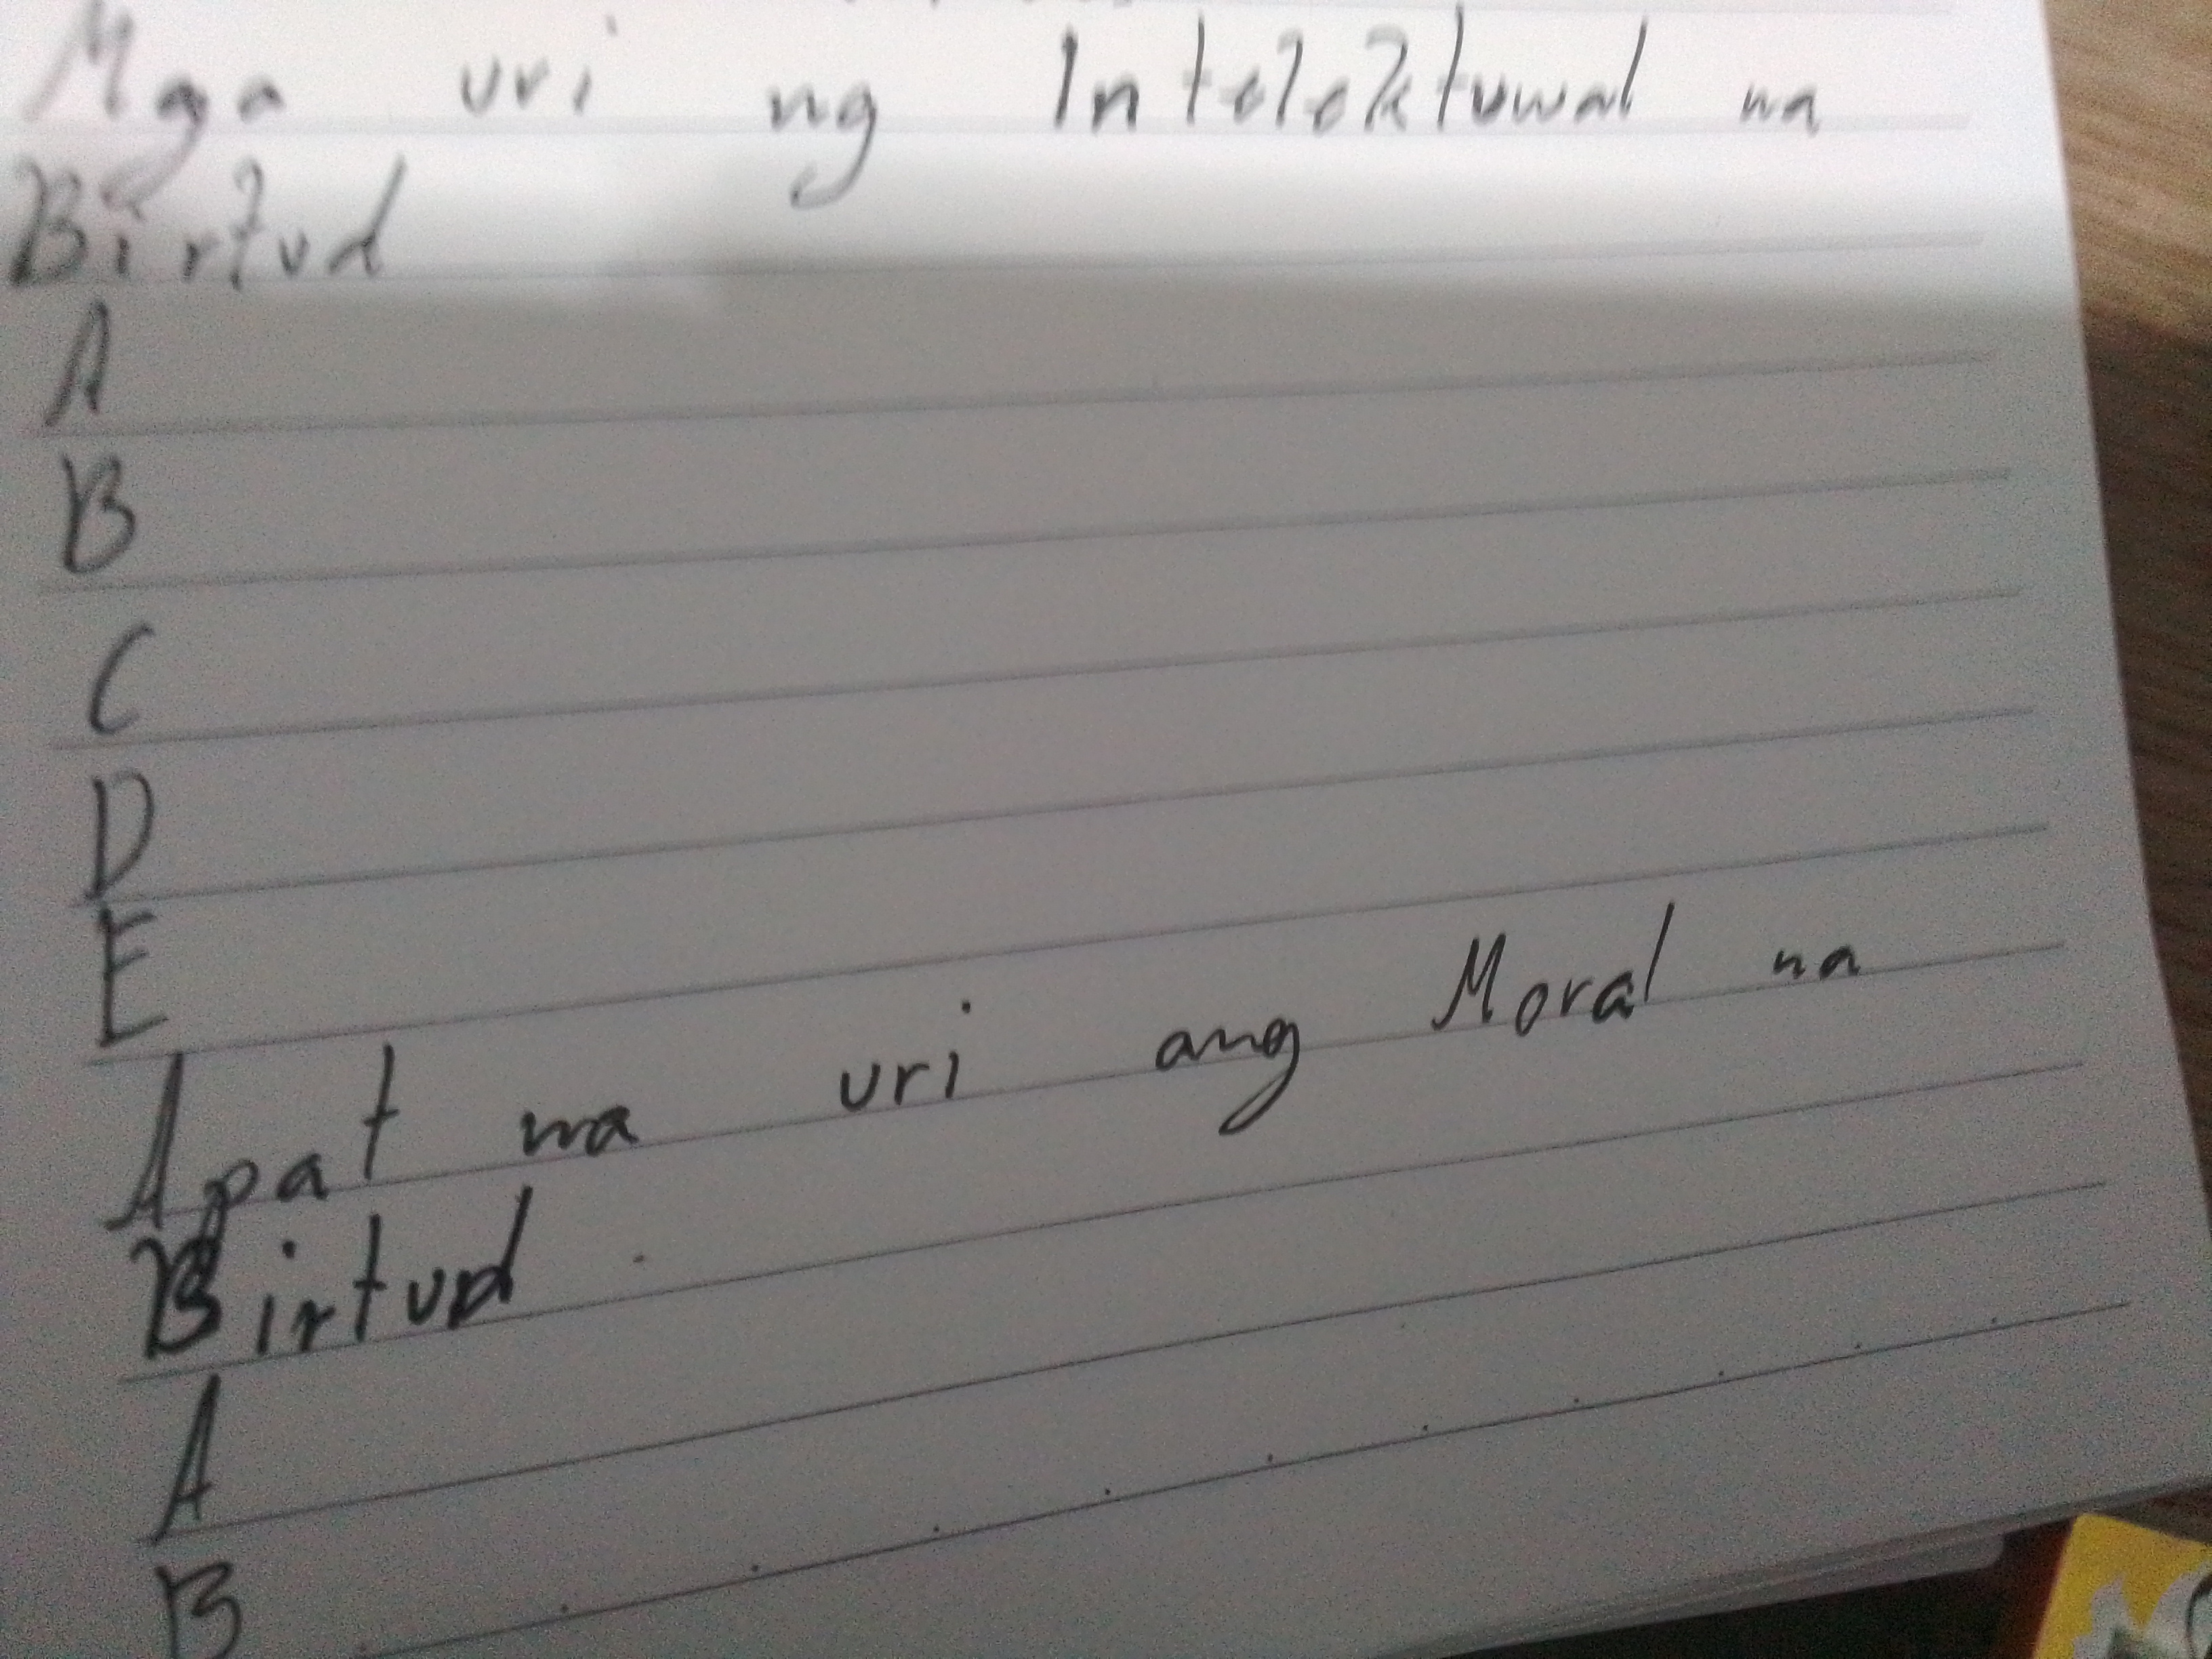 Mga uri ng Intelektuwal na
Birtud
A
B
C
D
E
Apat na uri ang Moral na
Birtud
A
B